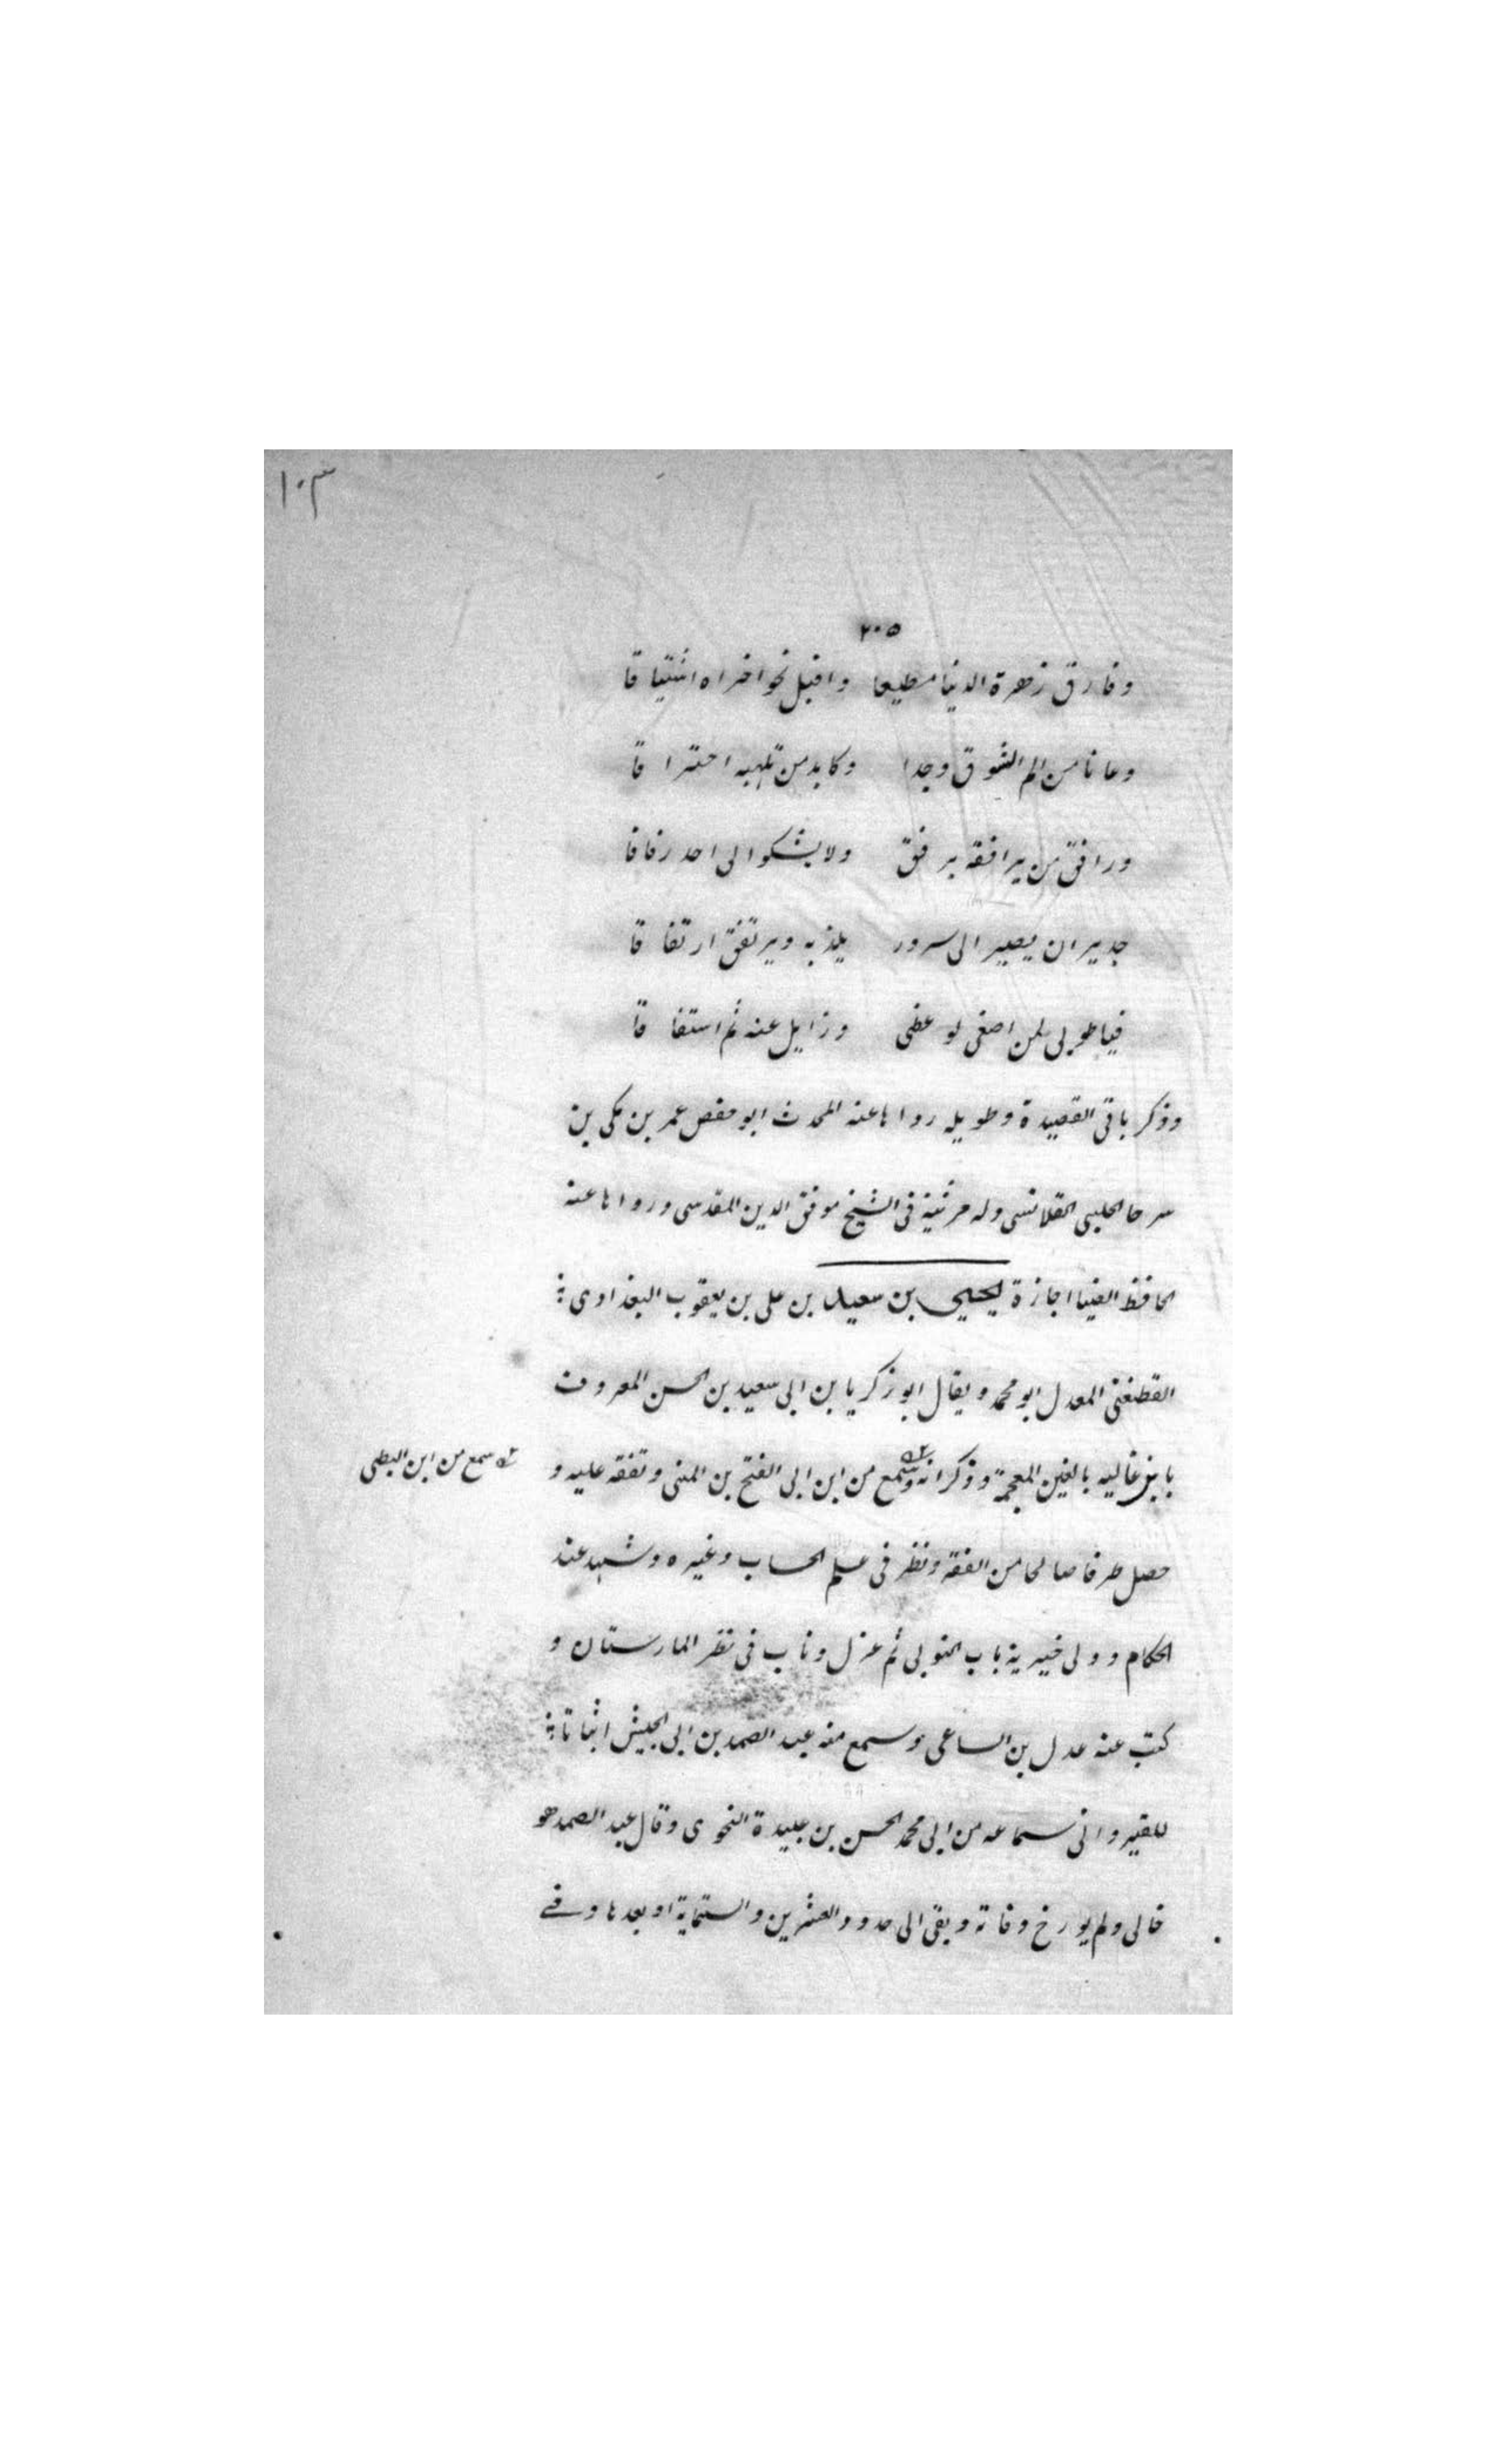 ١٠٣
٢٠٥
وفارق زهرة الدنيا مطيعا واقبل نحو اخراه اشتياقا
وعانا من الم الشوق وجدا وكابد من تلهبه احتراقا
ورافق من يرافقه برفق ولا يشكوا الى احد رفاقا
جدير ان يصير الى سرور يلذ به ويرتفق ارتفاقا
فيا طوبى لمن اصغى لوعظى وزايل عنه ثم استفاقا
وذكر باقى القصيدة وطويله رواها عنه المحدث ابو حفص عمر بن مكى بن
سرحا الحلبى القلانسى وله مرثية فى الشيخ موفق الدين المقدسى ورواها عنه
الحافظ الضيا اجازة يحيى بن سعيد بن على بن يعقوب البغدادى
القطفتى المعدل ابو محمد ويقال ابو زكريا بن ابى سعيد بن الحسن المعروف
بابن غاليه بالغين المعجمة وذكر انه وسمع من ابن ابى الفتح بن المنى وتفقه عليه و
سمع من ابن البطى
حصل طرفا صالحا من الفقه ونظر فى علم الحساب وغيره وشهد عند
الحكام وولى خبرية باب النوبى ثم عزل وناب فى نظر المارستان و
كتب عنه عدل بن الساعى وسمع منه عبد الصمد بن ابى الجيش اثباتا
للقيروانى سماعه من ابى محمد الحسن بن عبيدة النحوى وقال عبد الصمد هو
خالى ولم يورخ وفاته وبقى الى حدود العشرين والستماية او بعدها وفى